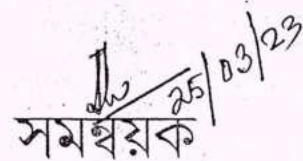 25/03/23
সমন্বয়ক